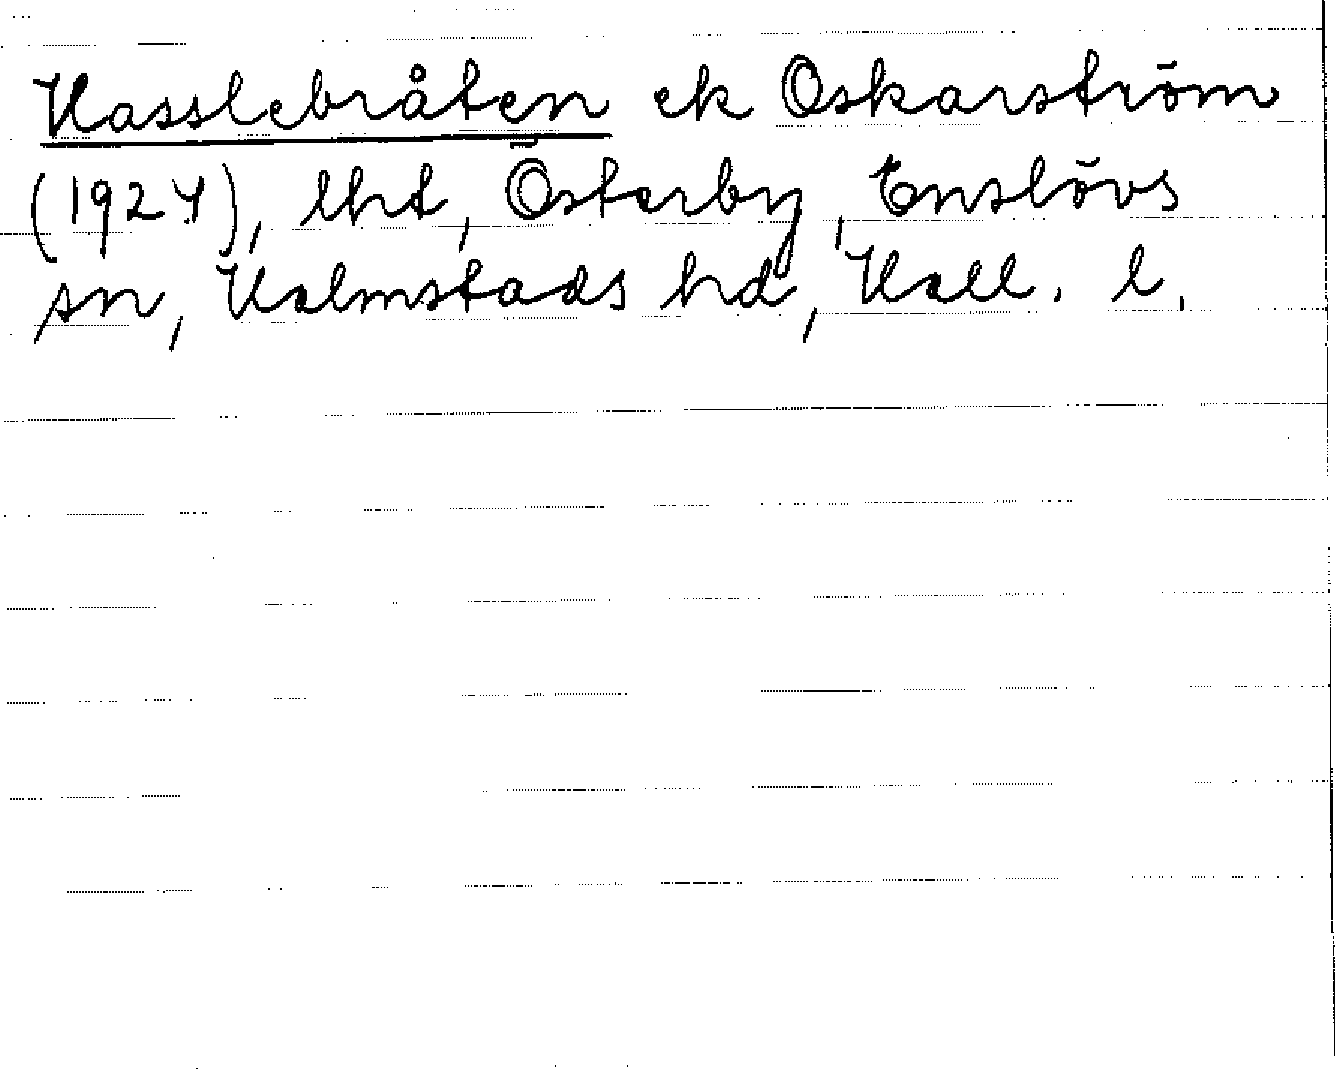 Hasslebråten ek Oskarström
(1924), lht, Österby, Enslövs
sn, Halmstads hd, Hall. l.